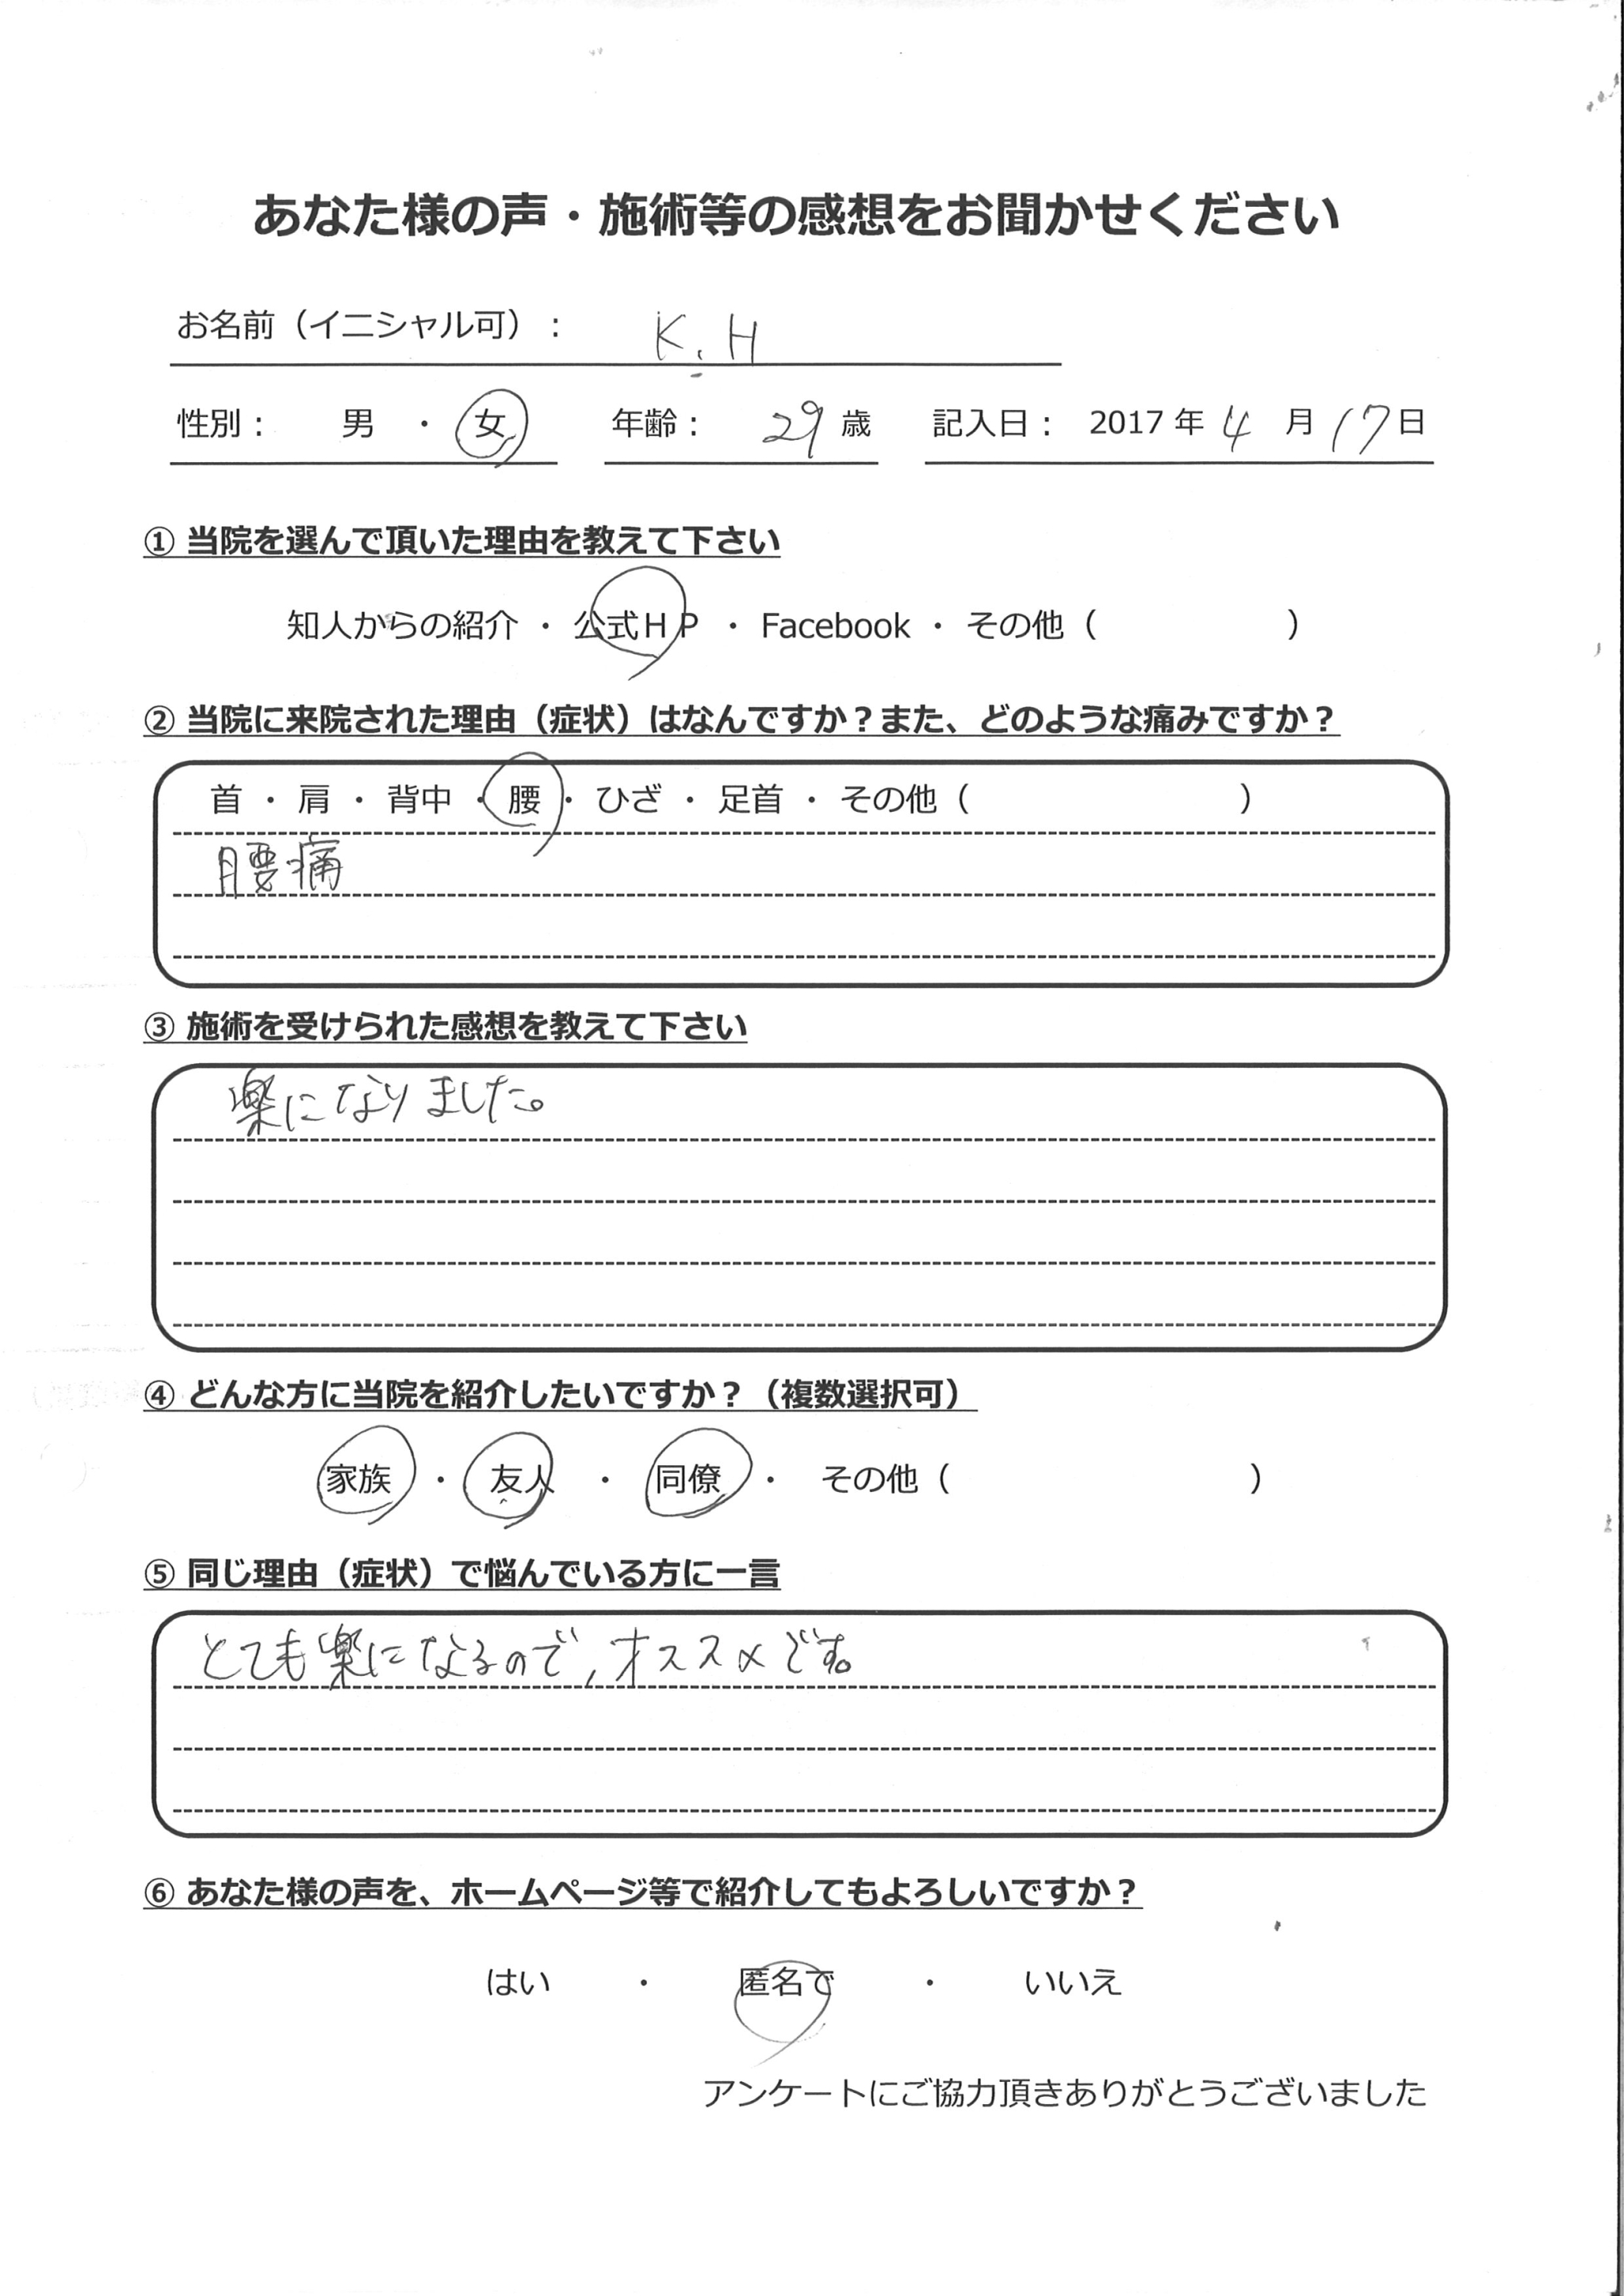 あなた様の声・施術等の感想をお聞かせください
お名前（イニシャル可）： K.H
性別： 男 ・ 女 年齢： 29 歳 記入日： 2017 年 4 月 17 日
① 当院を選んで頂いた理由を教えて下さい
知人からの紹介 ・ 公式HP ・ Facebook ・ その他（ ）
② 当院に来院された理由（症状）はなんですか？また、どのような痛みですか？
首 ・ 肩 ・ 背中 ・ 腰 ・ ひざ ・ 足首 ・ その他（ ）
腰痛
③ 施術を受けられた感想を教えて下さい
楽になりました。
④ どんな方に当院を紹介したいですか？（複数選択可）
家族 ・ 友人 ・ 同僚 ・ その他（ ）
⑤ 同じ理由（症状）で悩んでいる方に一言
とても楽になるので、オススメです。
⑥ あなた様の声を、ホームページ等で紹介してもよろしいですか？
はい ・ 匿名で ・ いいえ
アンケートにご協力頂きありがとうございました